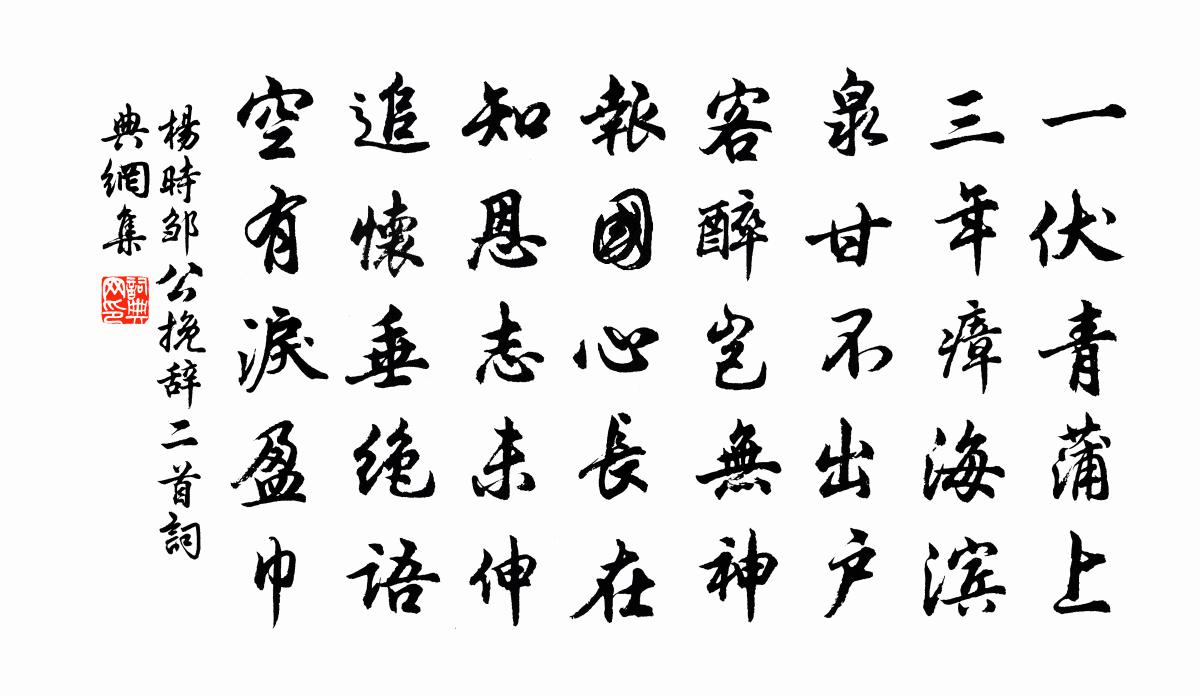 一伏青蒲上
三年瘴海滨
泉甘不出户
客醉岂無神
報國心長在
知恩志未伸
追懷垂绝语
空有淚盈巾
楊時邹公挽辞二首詞
典網集
詞典
网印